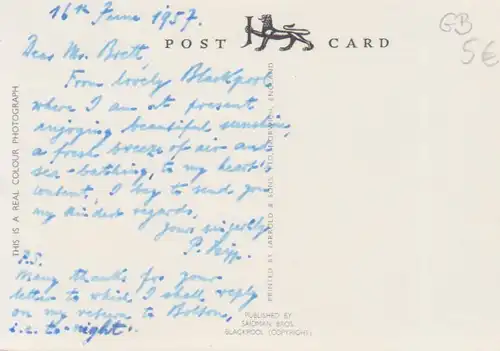 16th June 1957.
GB
5€
POST CARD
Dear Mr. Brett,
From lovely Blackpool
where I am at present
enjoying beautiful sunshine,
a fresh breeze of air and
sea-bathing, to my heart's
content, I beg to send you
my kindest regards.
Yours
P.
P.S.
Many thanks for your
letter to which I shall reply
on my return to Bolton,
i.e. to-night.
THIS IS A REAL COLOUR PHOTOGRAPH
PRINTED BY JARROLD & SONS LTD., NORWICH, ENGLAND
PUBLISHED BY
SAIDMAN BROS.
BLACKPOOL (COPYRIGHT)